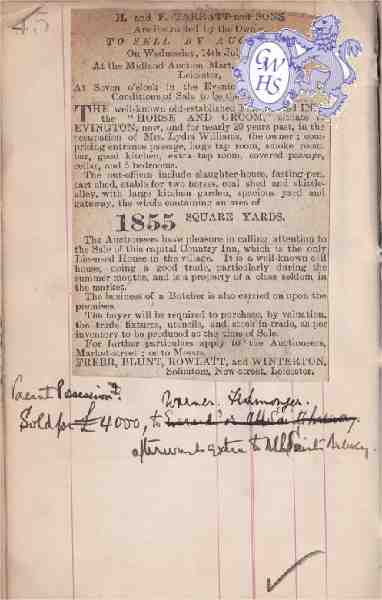 45
H. and F. TARRATT and SONS
Are instructed by the Owner
TO SELL BY AUC
On Wednesday, 14th Jul
At the Midland Auction Mart,
Leicester,
At Seven o'clock in the Evening
Conditions of Sale to be
THE well-known old-established INN
the "HORSE AND GROOM," situate
EVINGTON, now, and for nearly 20 years past, in the
occupation of Mrs. Lydia Williams, the owner; com-
prising entrance passage, large tap room, smoke room,
bar, good kitchen, extra tap room, covered passage,
cellar, and 5 bedrooms.
The out-offices include slaughter-house, fasting pen,
cart shed, stable for two horses, coal shed and skittle-
alley, with large kitchen garden, spacious yard and
gateway, the whole containing an area of
1855 SQUARE YARDS.
The Auctioneers have pleasure in calling attention to
the Sale of this capital Country Inn, which is the only
Licensed House in the village. It is a well-known old
house, doing a good trade, particularly during the
summer months, and is a property of a class seldom in
the market.
The business of a Butcher is also carried on upon the
premises.
The buyer will be required to purchase, by valuation,
the trade fixtures, utensils, and stock-in-trade, as per
inventory to be produced at the time of Sale.
For further particulars apply to the Auctioneers,
Market-street; or to Messrs.
FREER, BLUNT, ROWLATT, and WINTERTON,
Solicitors, New-street, Leicester.
GWHS
Possession
Sold for £4000, to
afterwards to All Saints